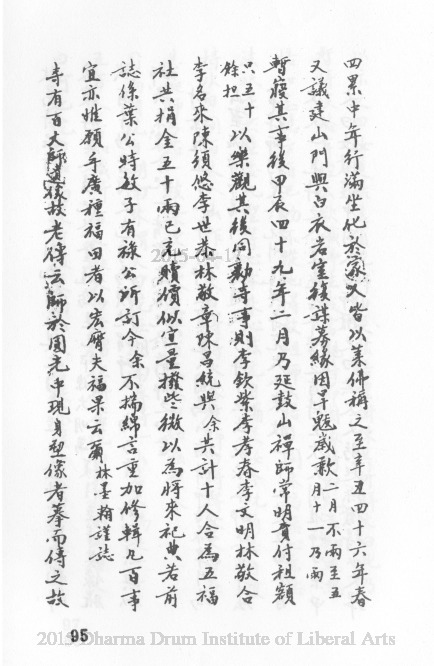 四眾中年行滿坐化於家人皆以萊佛稱之至辛丑四十六年春
又議建山門與白衣岩室後謀募緣因旱魃歲歉二月不雨至五月十一乃雨
暫寢其事後甲辰四十九年二月乃延鼓山禪師常明貴付租額
只五十餘担以樂觀其後同勷寺事則李欽榮李孝春李文明林敬合
李名來陳須悠李世恭林敬章陳昌統與余共計十人合為五福
社共捐金五十兩已充贖價似宜量撥些微以為將來祀典若前
誌係葉公時敏子有祿公所訂今余不揣綿言重加修輯凡百事
宜亦惟願手廣種福田者以宏膺夫福果云爾 林墨翰謹誌
寺有百大師遺後故老傳云師於圓光中現身塑像者摹而傳之故
95
2015 Dharma Drum Institute of Liberal Arts